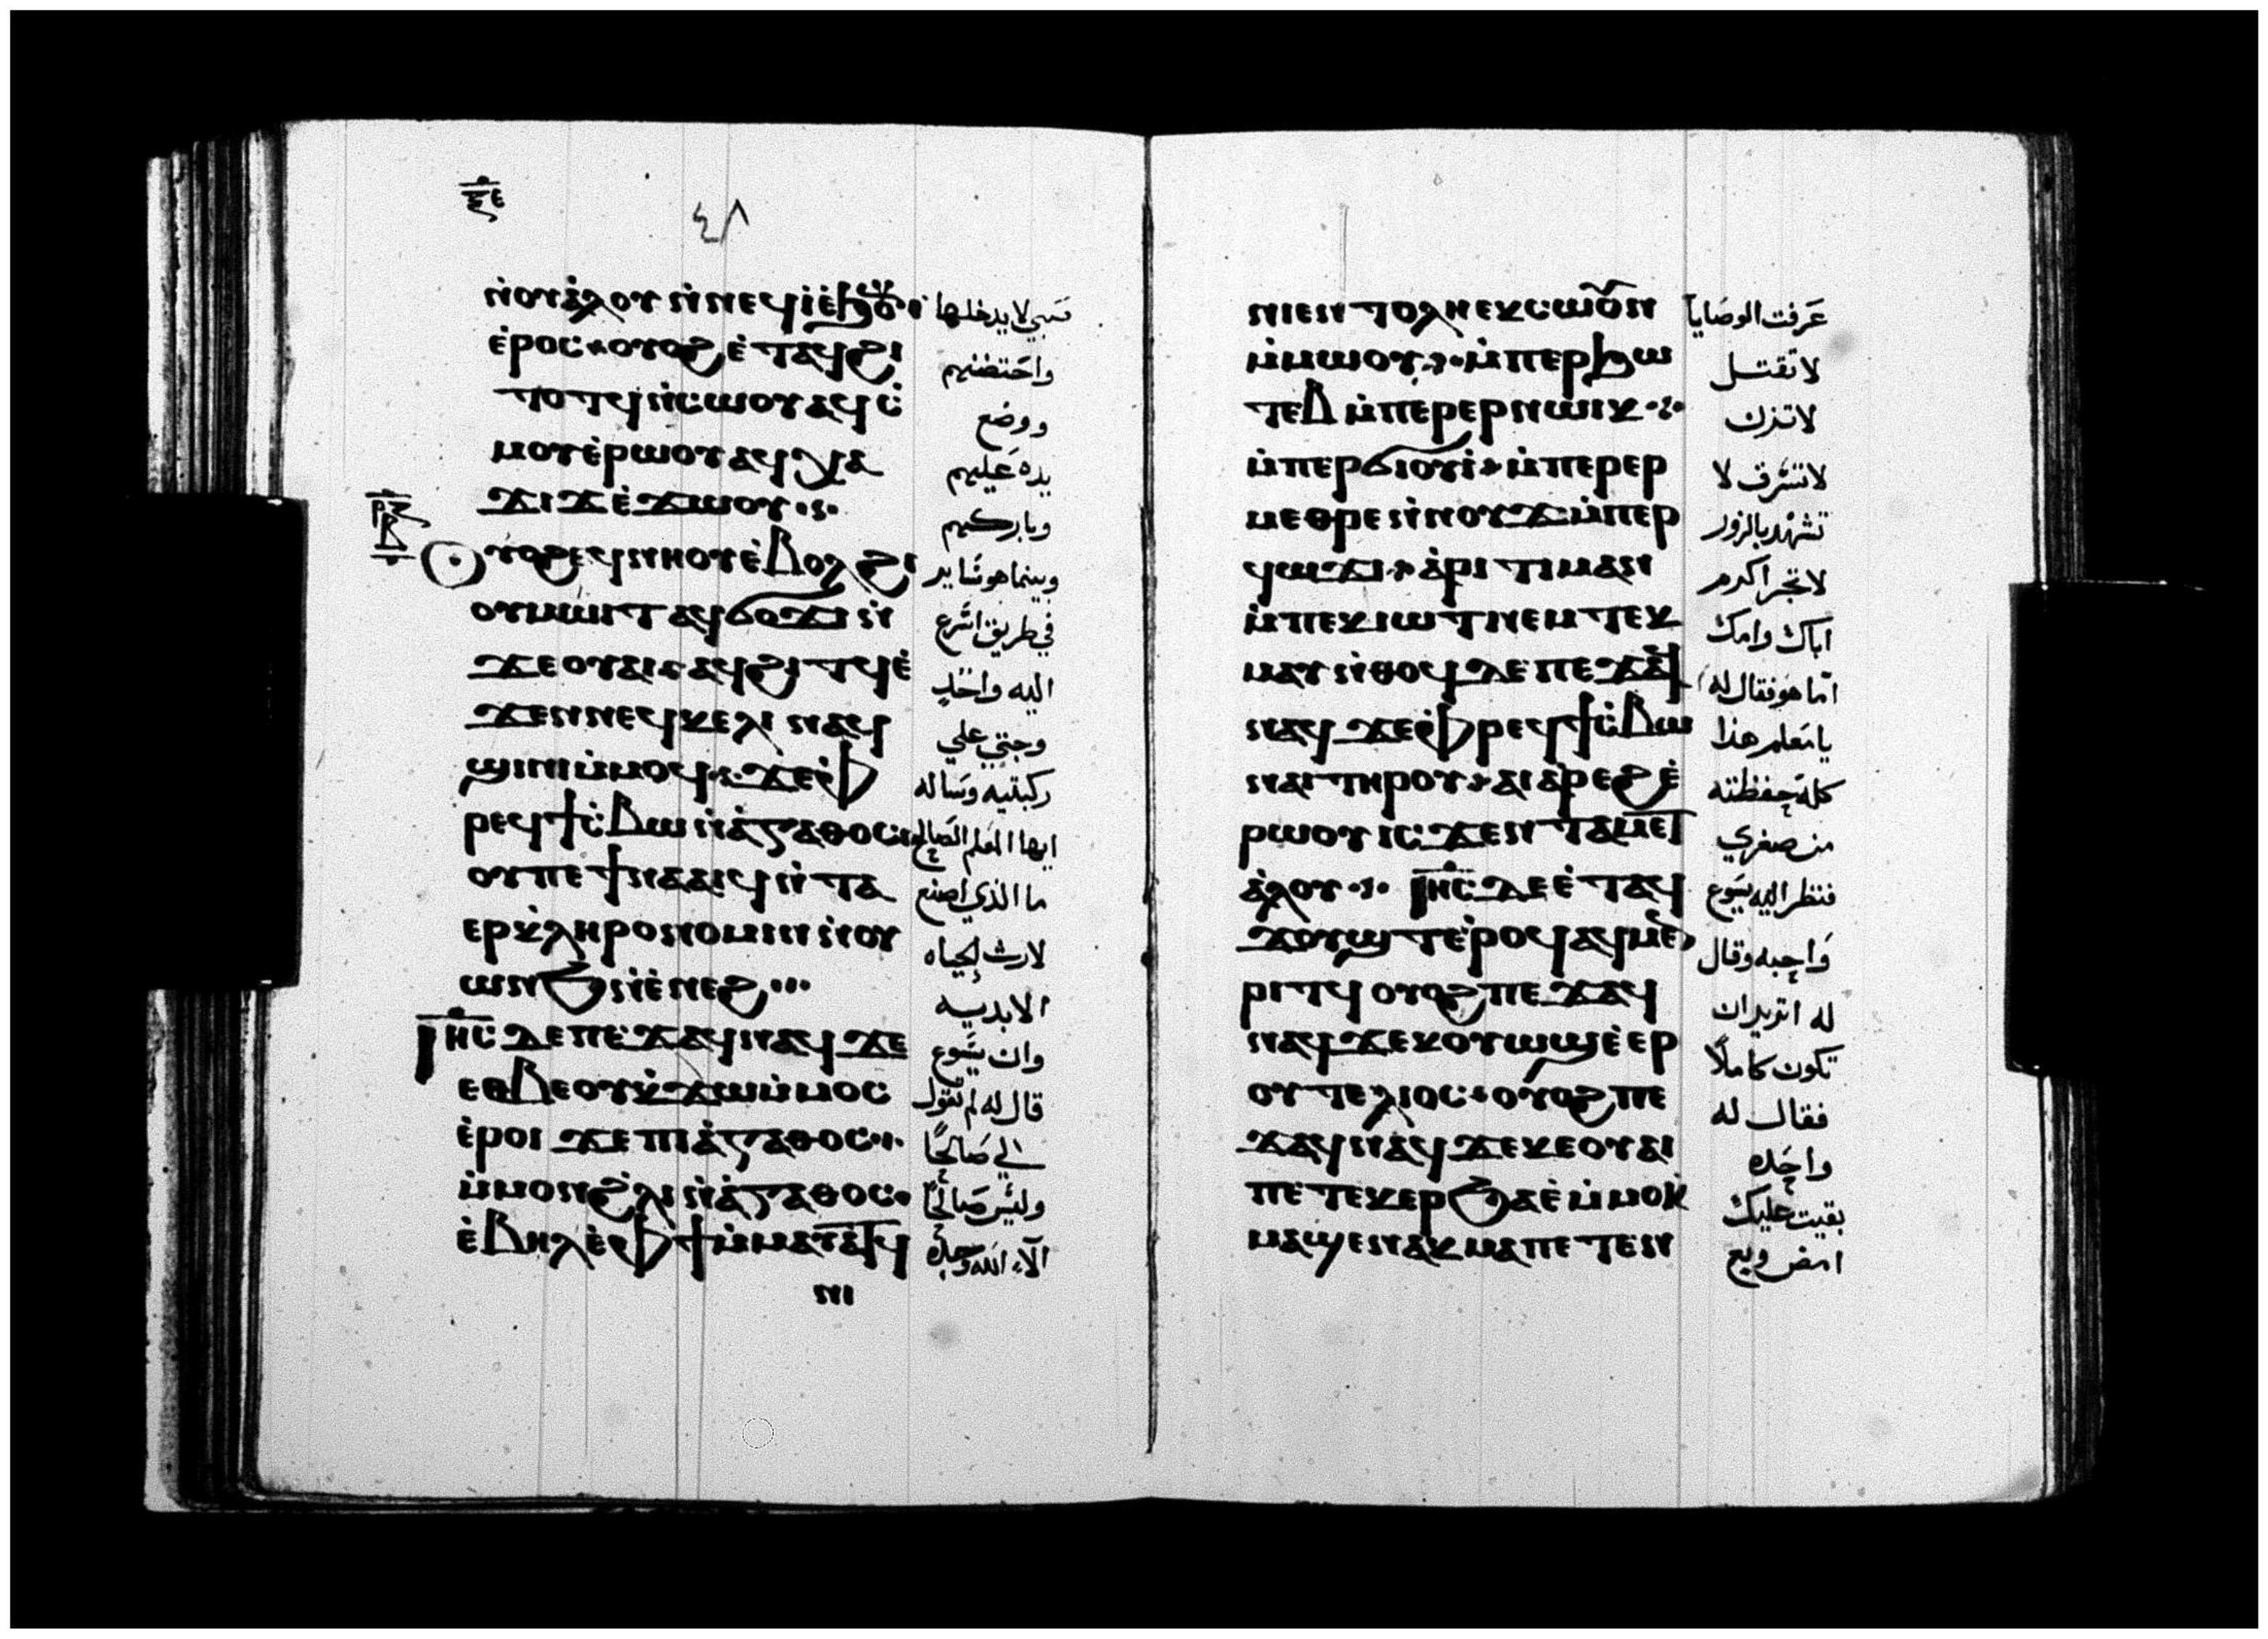 ⲝ̅ⲉ
٤٨
ⲛ̀ⲟⲩⲁ̀ⲗⲟⲩ ⲛ̀ⲛⲉϥⲓ̀ⲉ̀ϧⲟⲩⲛ صبي لا يدخلها
ⲉ̀ⲣⲟⲥ ⲟⲩⲟϩ ⲉ̀ⲧⲁϥϩⲓ واحتضنهم
ⲧⲟⲧϥ ⲛ̀ⲥⲱⲟⲩ ⲁϥⲥ̀ ووضع
ⲙⲟⲩⲉ̀ⲣⲱⲟⲩ ⲁϥⲭⲁ يده عليهم
ϫⲓϫ ⲉ̀ϫⲱⲟⲩ وباركهم
ⲟⲩⲟϩ ⲉϥⲛⲏⲟⲩ ⲉ̀ⲃⲟⲗ ϩⲓ وبينما هو ساير
ⲟⲩⲙⲱⲓⲧ ⲁϥϭⲟϫⲓ ⲛ̀ في طريق اسرع
ϫⲉⲟⲩⲁⲓ ⲁϥϩⲓⲧϥ ⲉ̀ اليه واحد
ϫⲉⲛ ⲛⲉϥⲕⲉⲗⲓ ⲛⲁϥ وجتي علي
ϣⲓⲛⲓ ⲙ̀ⲙⲟϥ ϫⲉ ⲫ̀ ركبتيه وساله
ⲣⲉϥϯⲥ̀ⲃⲱ ⲛ̀ⲁ̀ⲅⲁⲑⲟⲥ ايها المعلم الصالح
ⲟⲩ ⲡⲉϯⲛⲁⲁⲓϥ ⲛ̀ⲧⲁ ما الذي اصنع
ⲉⲣⲕ̀ⲗⲏⲣⲟⲛⲟⲙⲓⲛ ⲛ̀ⲟⲩ لارث الحياه
ⲱⲛϧ ⲛ̀ⲉ̀ⲛⲉϩ الابديه
ⲓⲏ̅ⲥ ⲇⲉ ⲡⲉϫⲁϥ ⲛⲁϥ ϫⲉ وان يسوع
ⲉⲑⲃⲉⲟⲩ ⲕ̀ϫⲱ ⲙ̀ⲙⲟⲥ قال له لم تقول
ⲉ̀ⲣⲟⲓ ϫⲉ ⲡⲓⲁ̀ⲅⲁⲑⲟⲥ لي صالحًا
ⲙ̀ⲙⲟⲛ ϩ̀ⲗⲓ ⲛ̀ⲁ̀ⲅⲁⲑⲟⲥ وليس صالحًا
ⲉ̀ⲃⲏⲗ ⲉ̀ⲫϯ ⲙ̀ⲙⲁⲩⲁⲧϥ الاّ الله وحده
ⲛⲓ
ⲛⲓⲉⲛⲧⲟⲗⲏ ⲉⲕⲥⲱⲟⲩⲛ عرفت الوصايا
ⲙ̀ⲙⲱⲟⲩ ⲙ̀ⲡⲉⲣϧⲱ لا تقتل
ⲧⲉⲃ ⲙ̀ⲡⲉⲣⲉⲣⲛⲱⲓⲕ لا تزن
ⲙ̀ⲡⲉⲣϭⲓⲟⲩⲓ̀ ⲙ̀ⲡⲉⲣⲉⲣ لا تسرق لا
ⲙⲉⲑⲣⲉ ⲛ̀ⲛⲟⲩϫ ⲙ̀ⲡⲉⲣ تشهد بالزور
ϥⲱϫⲓ ⲁ̀ⲣⲓⲧⲓⲙⲁⲛ لا تجر اكرم
ⲙ̀ⲡⲉⲕⲓⲱⲧ ⲛⲉⲙ ⲧⲉⲕ اباك وامك
ⲙⲁⲩ ⲛ̀ⲑⲟϥ ⲇⲉ ⲡⲉϫⲁϥ اما هو فقال له
ⲛⲁϥ ϫⲉ ⲫ̀ⲣⲉϥϯⲥ̀ⲃⲱ يا معلم هذا
ⲛⲁⲓ ⲧⲏⲣⲟⲩ ⲁⲓⲁ̀ⲣⲉϩ ⲉ̀ كله حفظته
ⲣⲱⲟⲩ ⲓⲥϫⲉⲛ ⲧⲁⲙⲉⲧ من صغري
ⲁ̀ⲗⲟⲩ ⲓⲏ̅ⲥ ⲇⲉ ⲉ̀ⲧⲁϥ فنظر اليه يسوع
ϫⲟⲩϣⲧ ⲉ̀ⲣⲟϥ ⲁϥⲙⲉⲛ واحبه وقال
ⲣⲓⲧϥ ⲟⲩⲟϩ ⲡⲉϫⲁϥ له اتريد ان
ⲛⲁϥ ϫⲉ ⲕⲟⲩⲱϣ ⲉ̀ⲉⲣ تكون كاملًا
ⲟⲩⲧⲉⲗⲓⲟⲥ ⲟⲩⲟϩ ⲡⲉ فقال له
ϫⲁϥ ⲛⲁϥ ϫⲉ ⲕⲉⲟⲩⲁⲓ واحده
ⲡⲉⲧⲉⲕⲉⲣϧⲁⲉ̀ ⲙ̀ⲙⲟⲕ بقيت عليك
ⲙⲁϣⲉⲛⲁⲕ ⲙⲁ ⲡⲉⲧⲉⲛ امض وبع